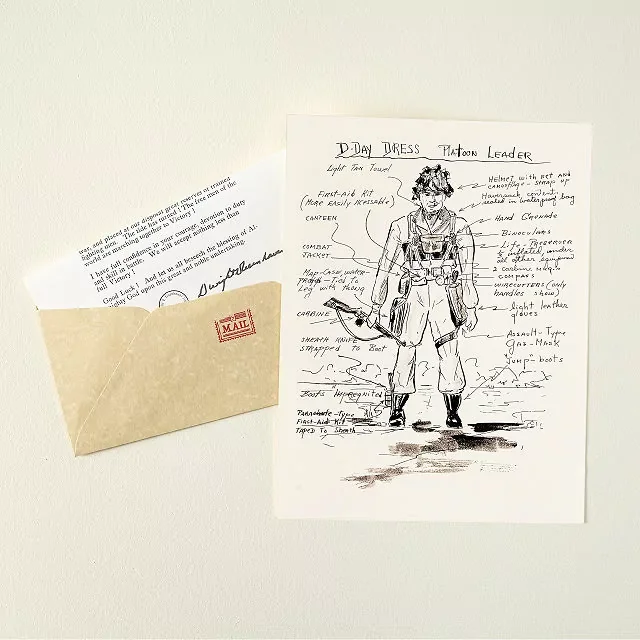 war, and placed at our disposal great reserves of trained
fighting men. The tide has turned ! The free men of the
world are marching together to Victory !
I have full confidence in your courage, devotion to duty
and skill in battle. We will accept nothing less than
full Victory !
Good Luck ! And let us all beseech the blessing of Al-
mighty God upon this great and noble undertaking.
Dwight D Eisenhower
MAIL
D-DAY DRESS PLATOON LEADER
Light Tan Towel
First-Aid Kit
(More Easily Acessable)
CANTEEN
COMBAT
JACKET
Map-Case, water-
proof - Tied To
Leg with thong
CARBINE
SHEATH KNIFE
strapped to Boot
Boots Impregnited
Parachute-Type
First-Aid Kit
TAPED To Sheath
HELMET with net and
camouflage - strap up
Haversack content
sealed in waterproof bag
Hand Grenade
Binoculars
Life Preserver
inflated, under
all other equipment
2 carbine
compass
WIRECUTTERS (only
handles show)
light leather
gloves
Assault-Type
Gas-Mask
"Jump" boots